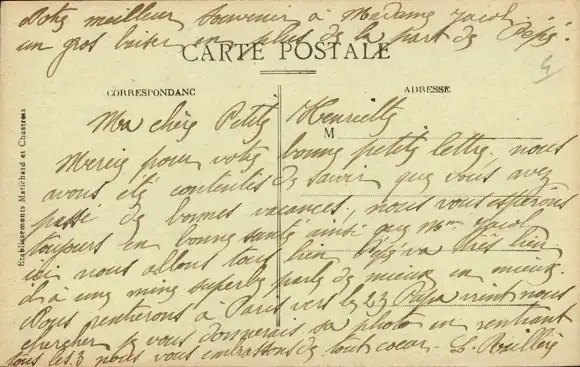 Votre meilleur souvenir à Madame Jacob
un gros baiser en plus de la part de Pépé.
CARTE POSTALE
CORRESPONDANC
ADRESSE
M
Etablissements Matichard et Chastroux
Ma chère Petite Henriette
Merci pour votre bonne petite lettre, nous
avons été contentes de savoir que vous avez
passé de bonnes vacances, nous vous espérons
toujours en bonne santé ainsi que Mme Jacob
ici nous allons tous bien Pépé va très bien
il a une mine superbe parle de mieux en mieux.
Nous rentrerons à Paris vers le 23 Papa vient nous
chercher je vous donnerais sa photo en rentrant
tous les 3 nous vous embrassons de tout coeur.